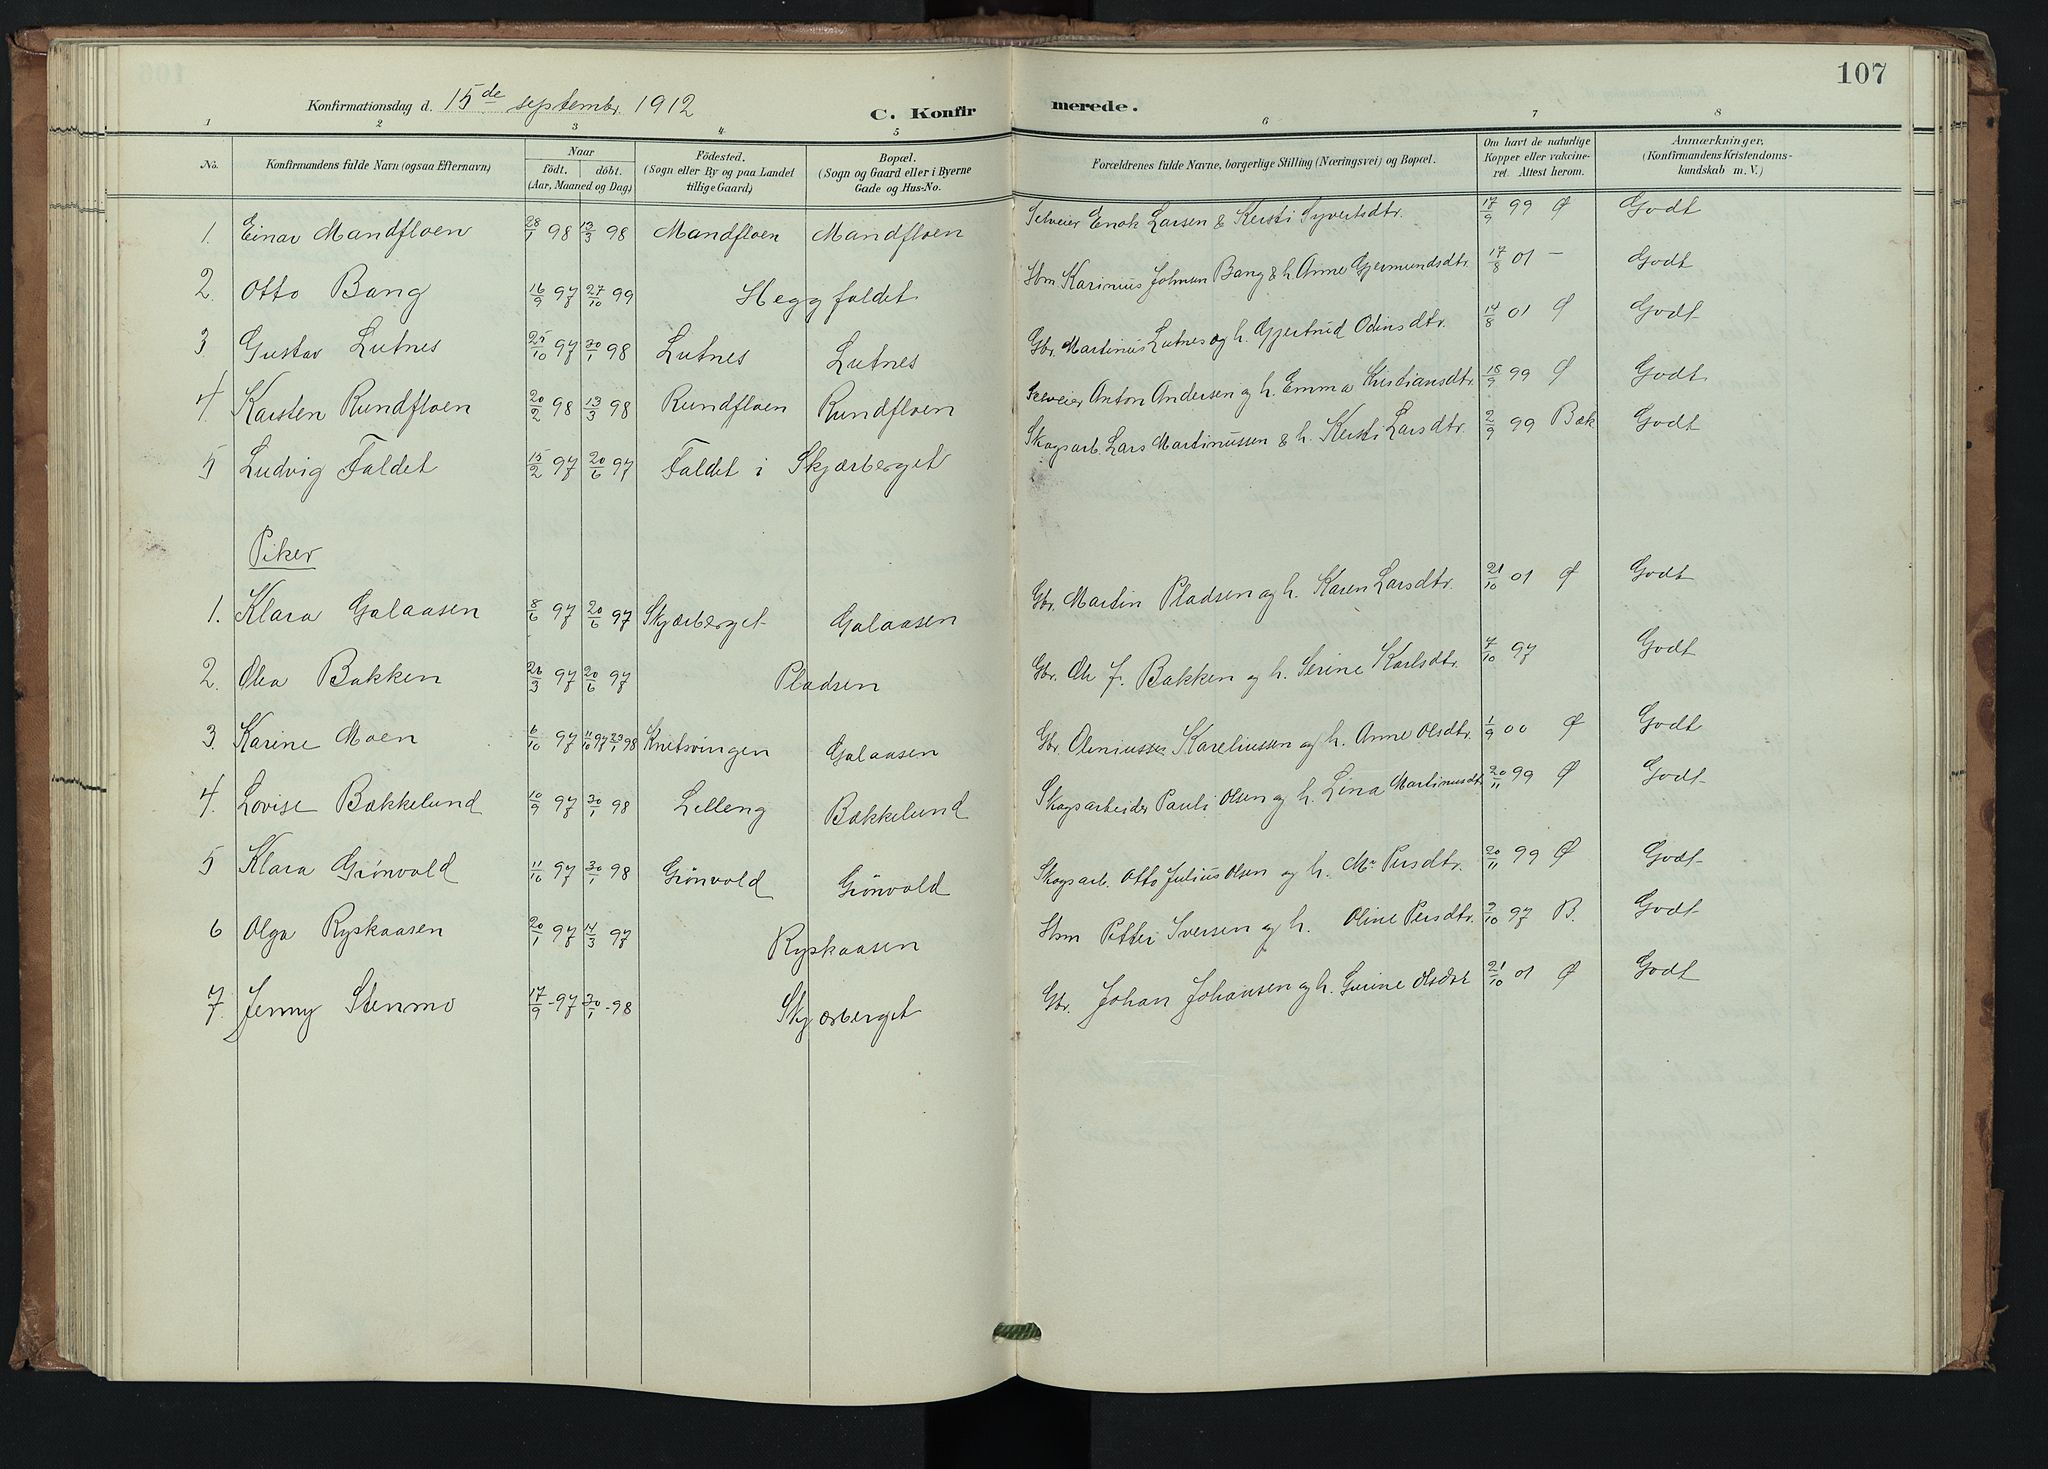 107
Konfirmationsdag d. 15de septembr. 1912 C. Konfirmerede.
1 2 3 4 5 6 7 8
No. Konfirmandens fulde Navn (ogsaa Efternavn) Naar födt. döbt. (Aar, Maaned og Dag) Födested. (Sogn eller By og paa Landet tillige Gaard) Bopæl. (Sogn og Gaard eller i Byerne Gade og Hus-No. Forældrenes fulde Navne, borgerlige Stilling (Næringsvei) og Bopæl. Om havt de naturlige Kopper eller vakcineret. Attest herom. Anmærkninger, (Konfirmandens Kristendomskundskab m. V.)
1. Einar Mandfloen 28/1 98 13/3 98 Mandfloen Mandfloen Selveier Enok Larsen & Kersti Syvertsdtr. 17/9 99 Ø Godt
2. Otto Bang 16/9 97 27/10 99 Heggfaldet Hsm Karinius Johnsen Bang & h. Anne Gjermundsdtr. 17/8 01 - Godt
3. Gustav Lutnes 25/10 97 30/1 98 Lutnes Lutnes Gbr. Martinius Lutnes og h. Gjertrud Odinsdtr. 14/8 01 Ø Godt
4. Karsten Rundfloen 20/2 98 13/3 98 Rundfloen Rundfloen Selveier Anton Andersen og h. Emma Kristiansdtr. 15/9 99 Ø Godt
5 Ludvig Faldet 15/2 97 20/6 97 Faldet i Skjærberget Skogsarb. Lars Martinussen & h. Kersti Larsdtr. 2/9 99 Bæk Godt
Piker
1. Klara Galaasen 8/6 97 20/6 97 Skjærberget Galaasen Gbr. Martin Pladsen og h. Karen Larsdtr. 21/10 01 Ø Godt
2. Olea Bakken 26/3 97 20/6 97 Pladsen Gbr. Ole J. Bakken og h. Serine Karlsdtr. 7/10 97 Godt
3. Karine Moen 6/10 97 11/10 97 23/1 98 Knetsvingen Galaasen Gbr. Oleniussen Kareliussen og h. Anne Olsdtr. 1/9 00 Ø Godt
4. Lovise Bækkelund 10/9 97 30/1 98 Lilleng Bækkelund Skogsarbeider Pauli Olsen og h. Lina Martinusdtr. 20/11 99 Ø Godt
5 Klara Grönvold 11/10 97 30/1 98 Grönvold Grönvold Skogsarb. Otto Julius Olsen og h. Persdtr. 20/11 99 Ø Godt
6 Olga Ryskaasen 20/1 97 14/3 97 Ryskaasen Hsm Petter Iversen og h. Oline Persdtr. 7/10 97 B. Godt
7. Jenny Stenmo 17/9 - 97 30/1 - 98 Skjærberget Gbr. Johan Johansen og h. Gurine Olsdtr 21/10 01 Ø Godt